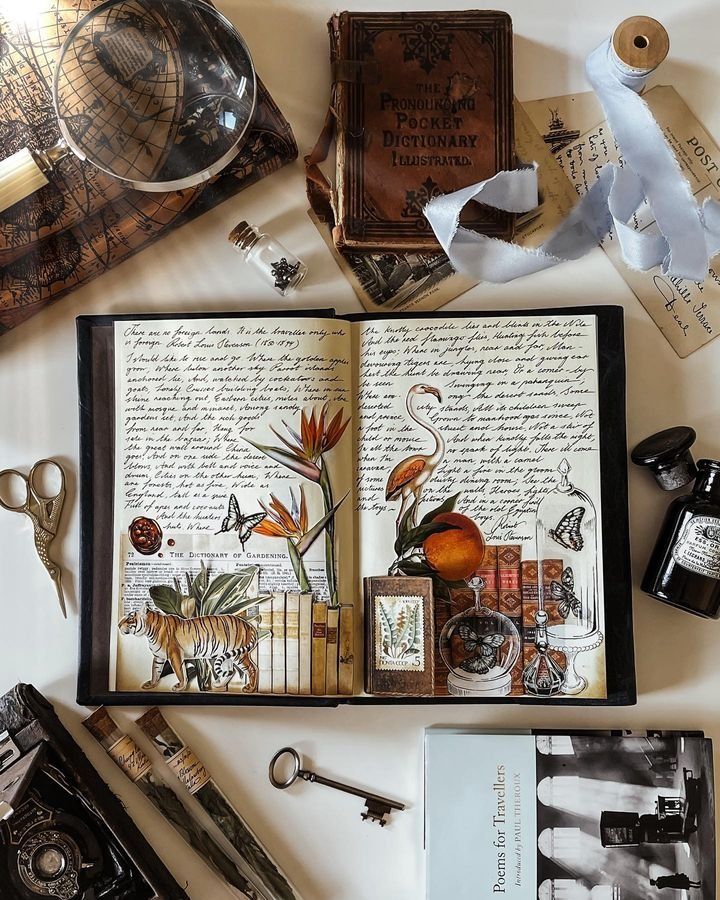 THE
PRONOUNCING
POCKET
DICTIONARY
ILLUSTRATED.
POST
There are no foreign lands. It is the traveller only who
is foreign Robert Louis Stevenson (1850-1894)
I should like to rise and go, Where the golden apples
grow, Where below another sky Parrot islands
anchored lie, And, watched by cockatoos and
goats, Lonely Crusoes building boats, Where in sun
shine reaching out, Eastern cities, miles about, Are
with mosque and minaret, Among sandy
gardens set, And the rich goods
from near and far, Hang for
sale in the bazaar; Where
the great wall around China
goes, And on one side the desert
blows, And with bell and voice and
drum, Cities on the other hum; Where
are forests, hot as fire, Wide as
England, tall as a spire
Full of apes and coconuts
And the hunters'
huts. Where
the knotty crocodile lies and blinks in the Nile
And the red flamingo flies, Hunting fish before
his eyes; Where in jungles, near and far, Man
devouring tigers are lying close and giving ear
Lest the hunt be drawing near Or a comer-by
be seen Swinging in a palanquin,
Where are among the desert sands, Some
deserted city stands, All its children sweep
and prince, Grown to manhood ages since, Not
a foot in the street and house, Not a stir of
child or mouse And when kindly falls the night,
In all the town no spark of light, There ill come
when I'm a man, with a camel
caravan, Light a fire in the gloom
of some dusty dining room; See the
pictures on the walls, Heroes fights
and And in a corner
the toys of the old Egyptian
boys. Robert
Louis Stevenson
72 THE DICTIONARY OF GARDENING,
ПОЧТА СССР
5
Poems for Travellers
Introduced by PAUL THEROUX